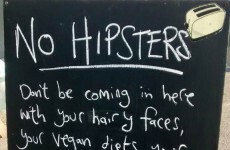 NO HIPSTERS
Dont be coming in here
with your hairy faces,
your vegan diets, your